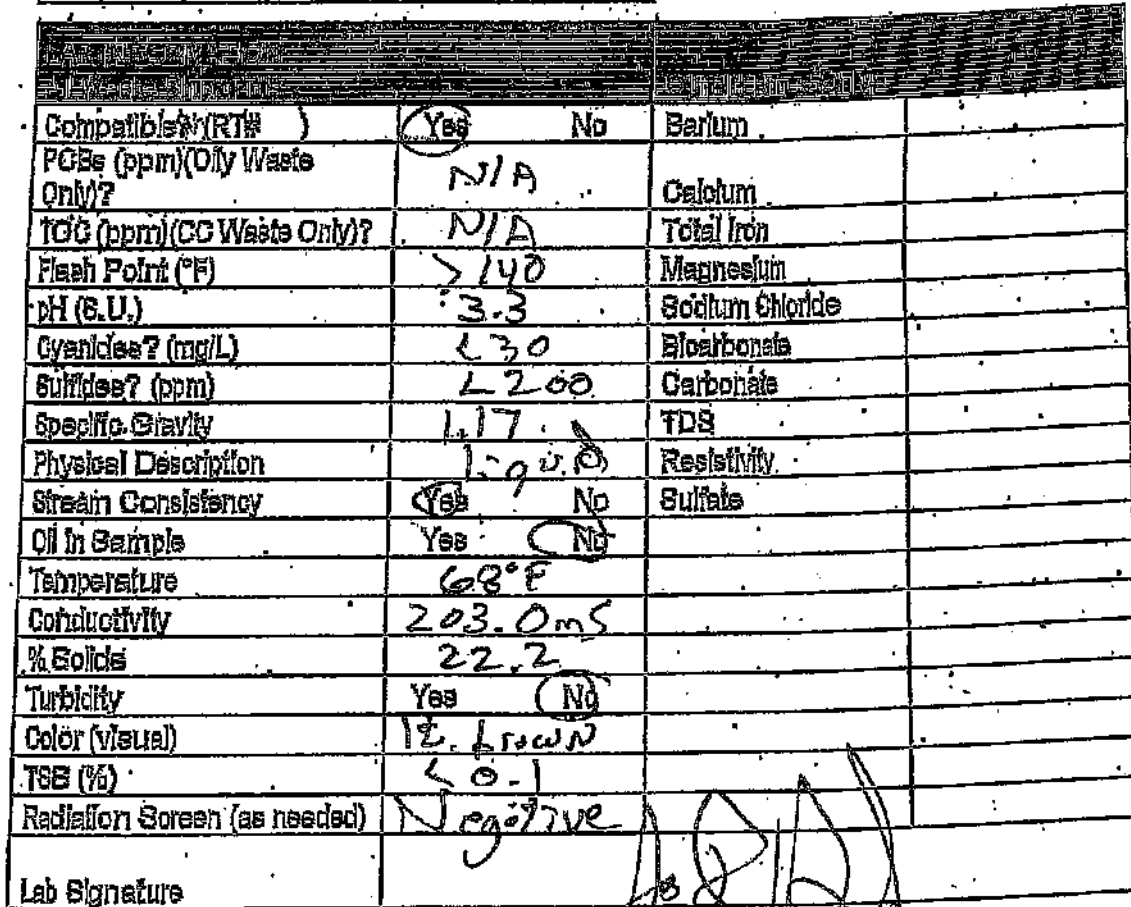 Compatible? (RT# ) Yes No Barium
PCBs (ppm)(Oily Waste
Only)? N/A Calcium
TOC (ppm)(CC Waste Only)? N/A Total Iron
Flash Point (°F) >140 Magnesium
pH (S.U.) 3.3 Sodium Chloride
Cyanides? (mg/L) <30 Bicarbonate
Sulfides? (ppm) <200 Carbonate
Specific Gravity 1.17 TDS
Physical Description liquid Resistivity
Stream Consistency Yes No Sulfate
Oil In Sample Yes No
Temperature 68°F
Conductivity 203.0mS
% Solids 22.2
Turbidity Yes No
Color (visual) lt. brown
TSS (%) <0.1
Radiation Screen (as needed) Negative
Lab Signature